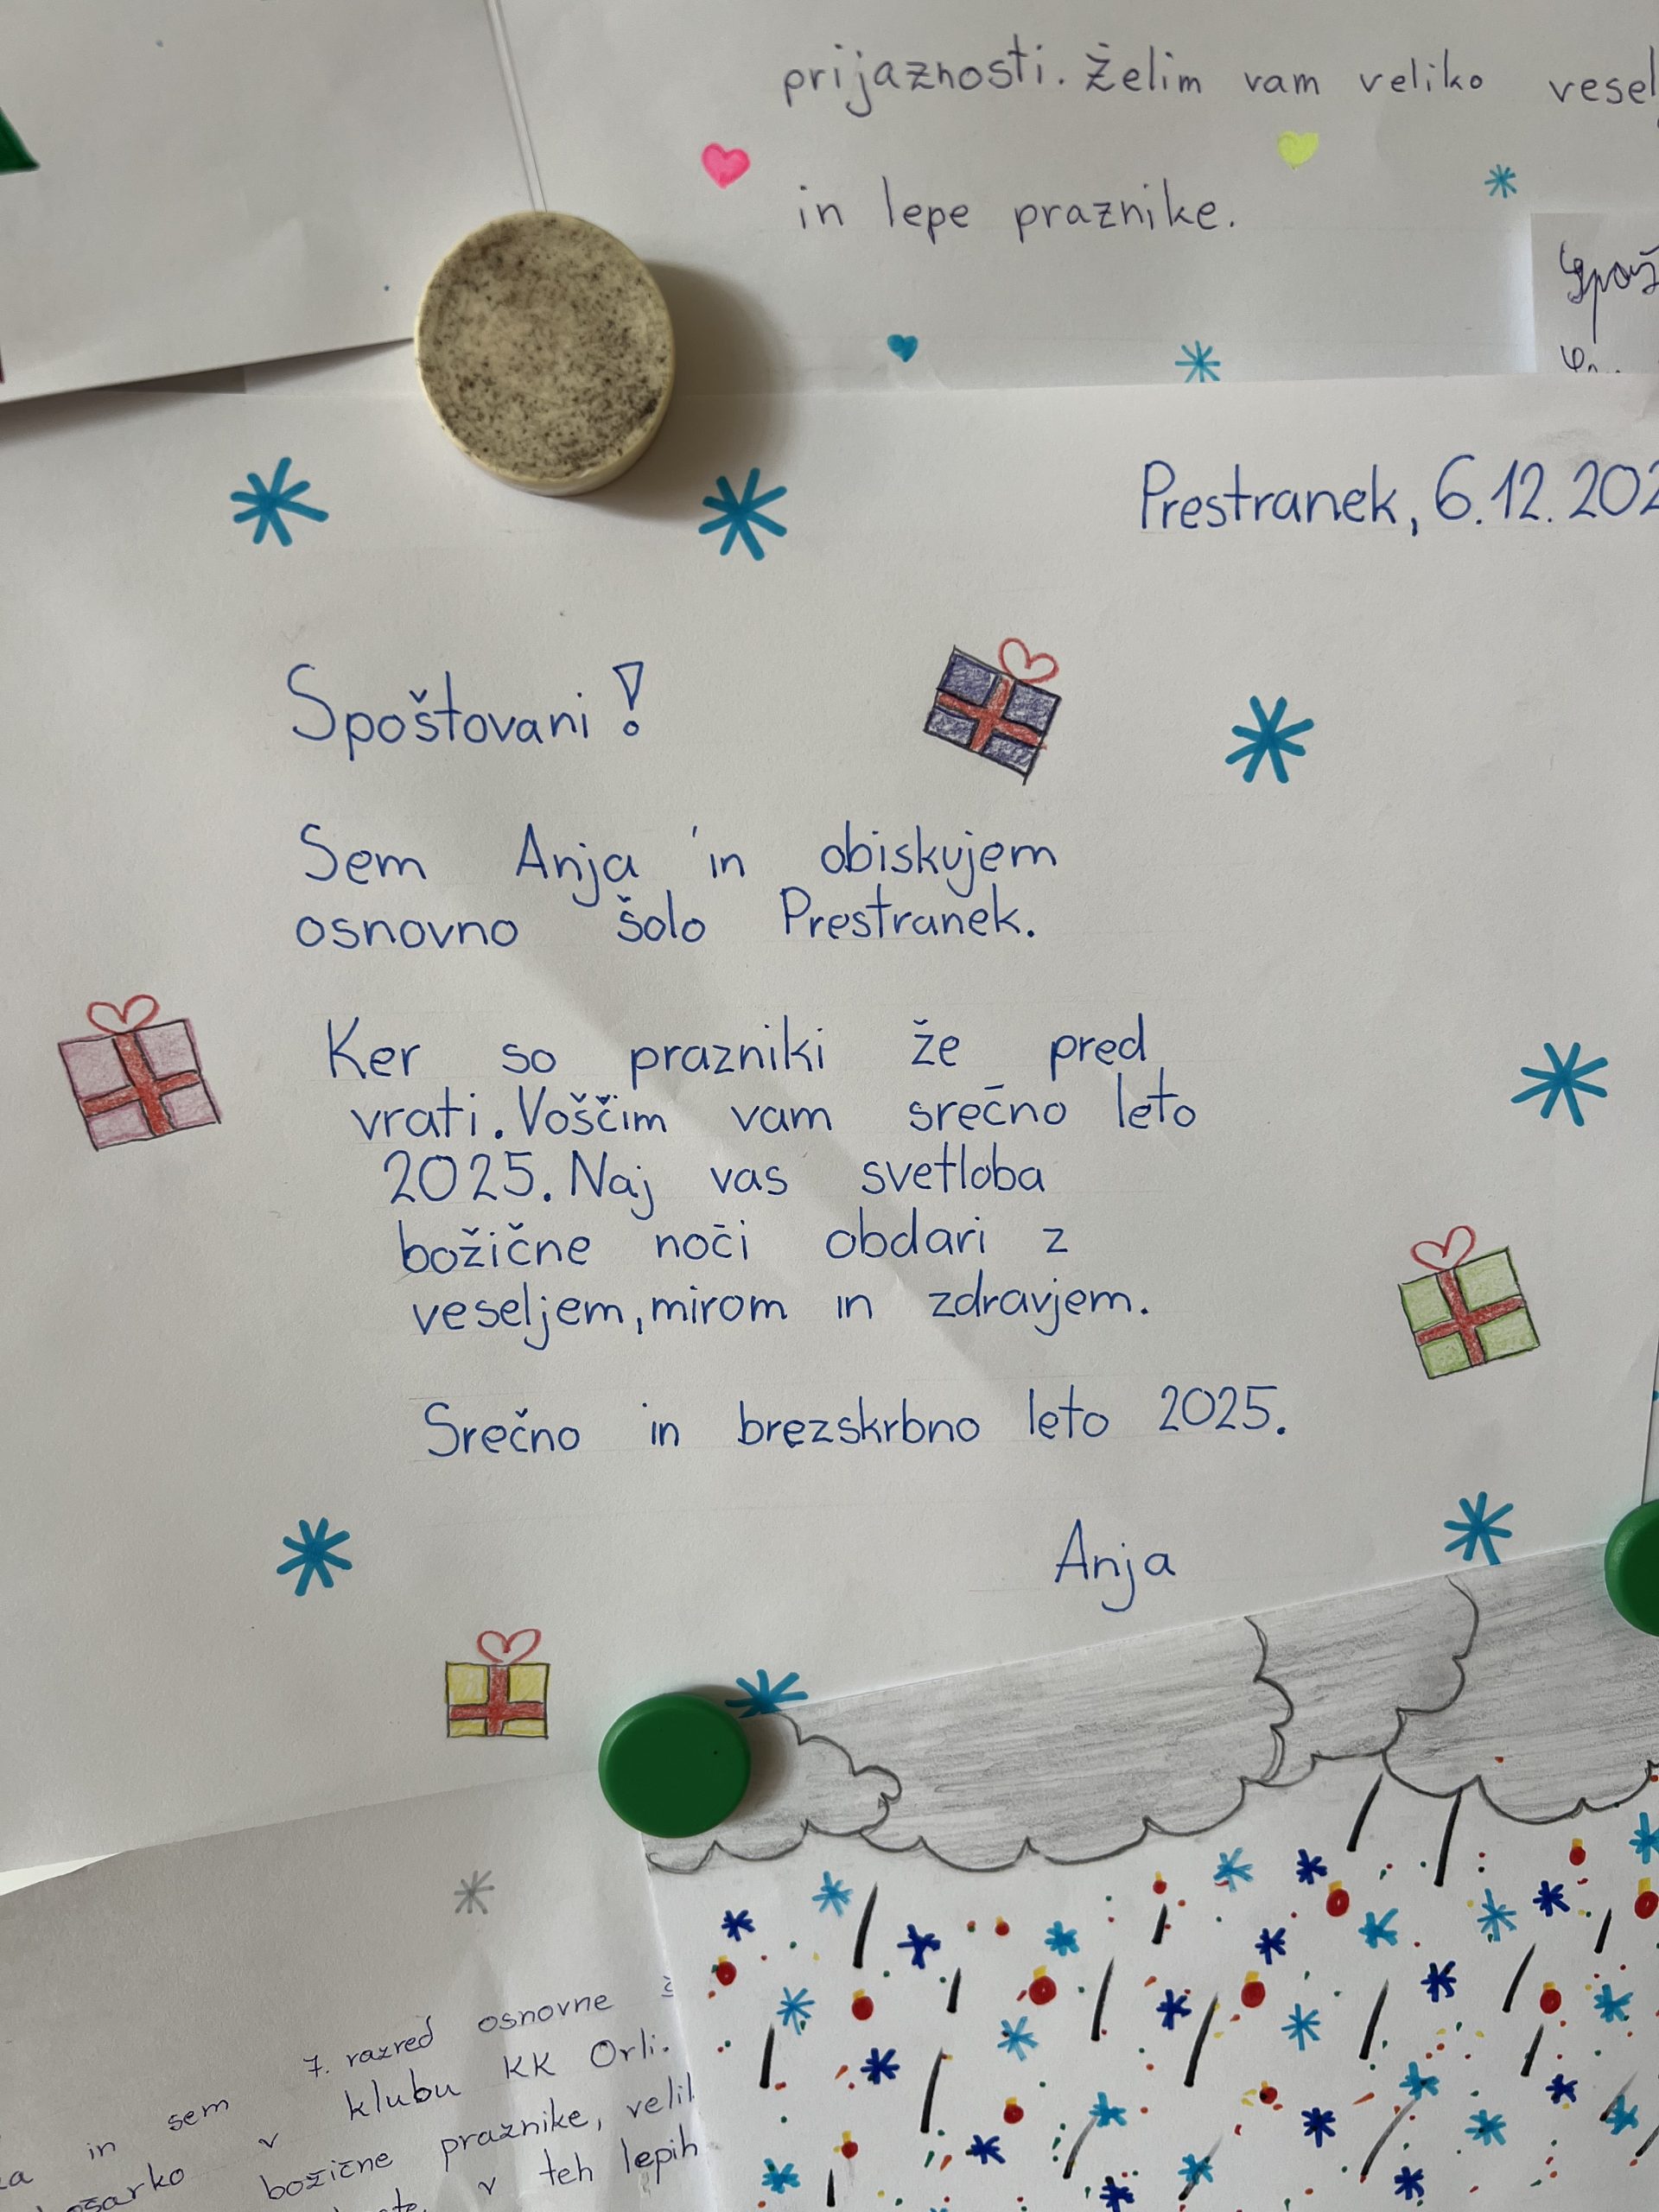 prijaznosti. Želim vam veliko
in lepe praznike.
Prestranek, 6.12.202
Spoštovani!
Sem Anja in obiskujem
osnovno šolo Prestranek.
Ker so prazniki že pred
vrati. Voščim vam srečno leto
2025. Naj vas svetloba
božične noči obdari z
veseljem, mirom in zdravjem.
Srečno in brezskrbno leto 2025.
Anja
in sem 7. razred osnovne
v klubu KK Orli.
božične praznike,
v teh lepih